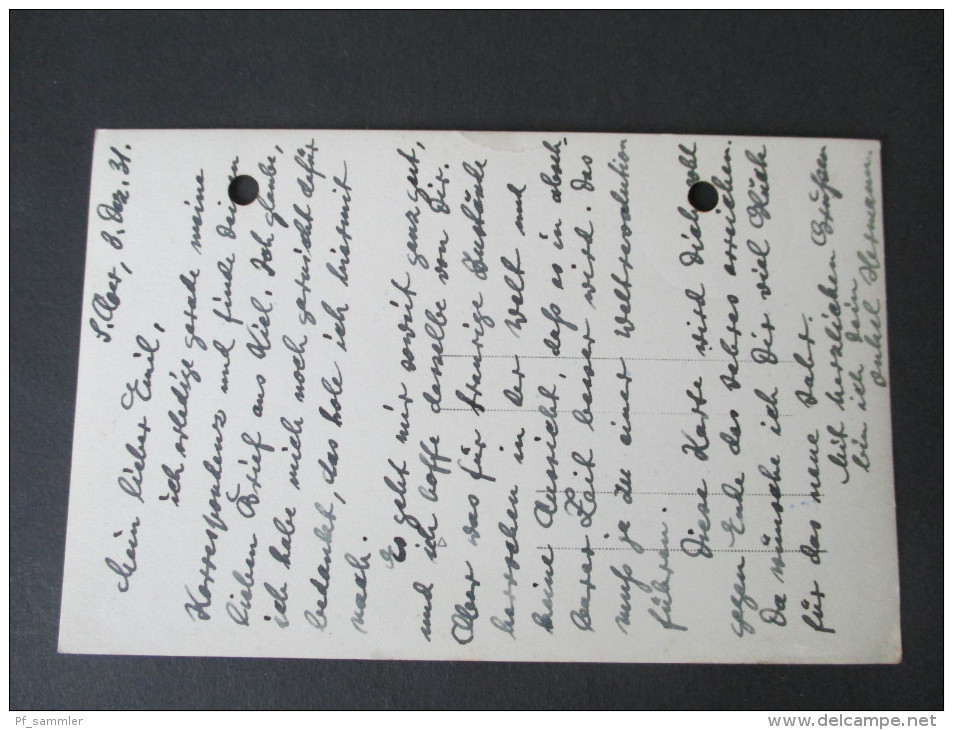 8. Dez. 31.
Mein lieber Emil,
ich erledige gerade meine
Korrespondenz und finde deinen
lieben Brief aus Kiel. Ich glaube,
ich habe mich noch garnicht dafür
bedankt, das hole ich hiermit
nach.
Es geht mir soweit ganz gut,
und ich hoffe dasselbe von Dir.
Aber was für traurige Zustände
herrschen in der Welt und
keine Aussicht, dass es in abseh-
barer Zeit besser wird. Das
muss ja zu einer Weltrevolution
führen.
Diese Karte wird Dich wohl
gegen Ende des Jahres erreichen.
Da wünsche ich Dir viel Glück
für das neue Jahr.
Mit herzlichen Grüßen
bin ich dein
Onkel Hermann.
Pf_sammler
www.delcampe.net